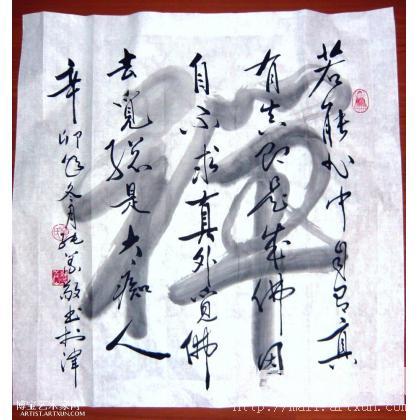 禅
若能心中自見真
有真即是成佛因
自不求真外覓佛
去覓總是大痴人
辛卯年冬月張萬敬书於津
博宝艺术家网
ARTIST.ARTXUN.COM
http://mall.artxun.com